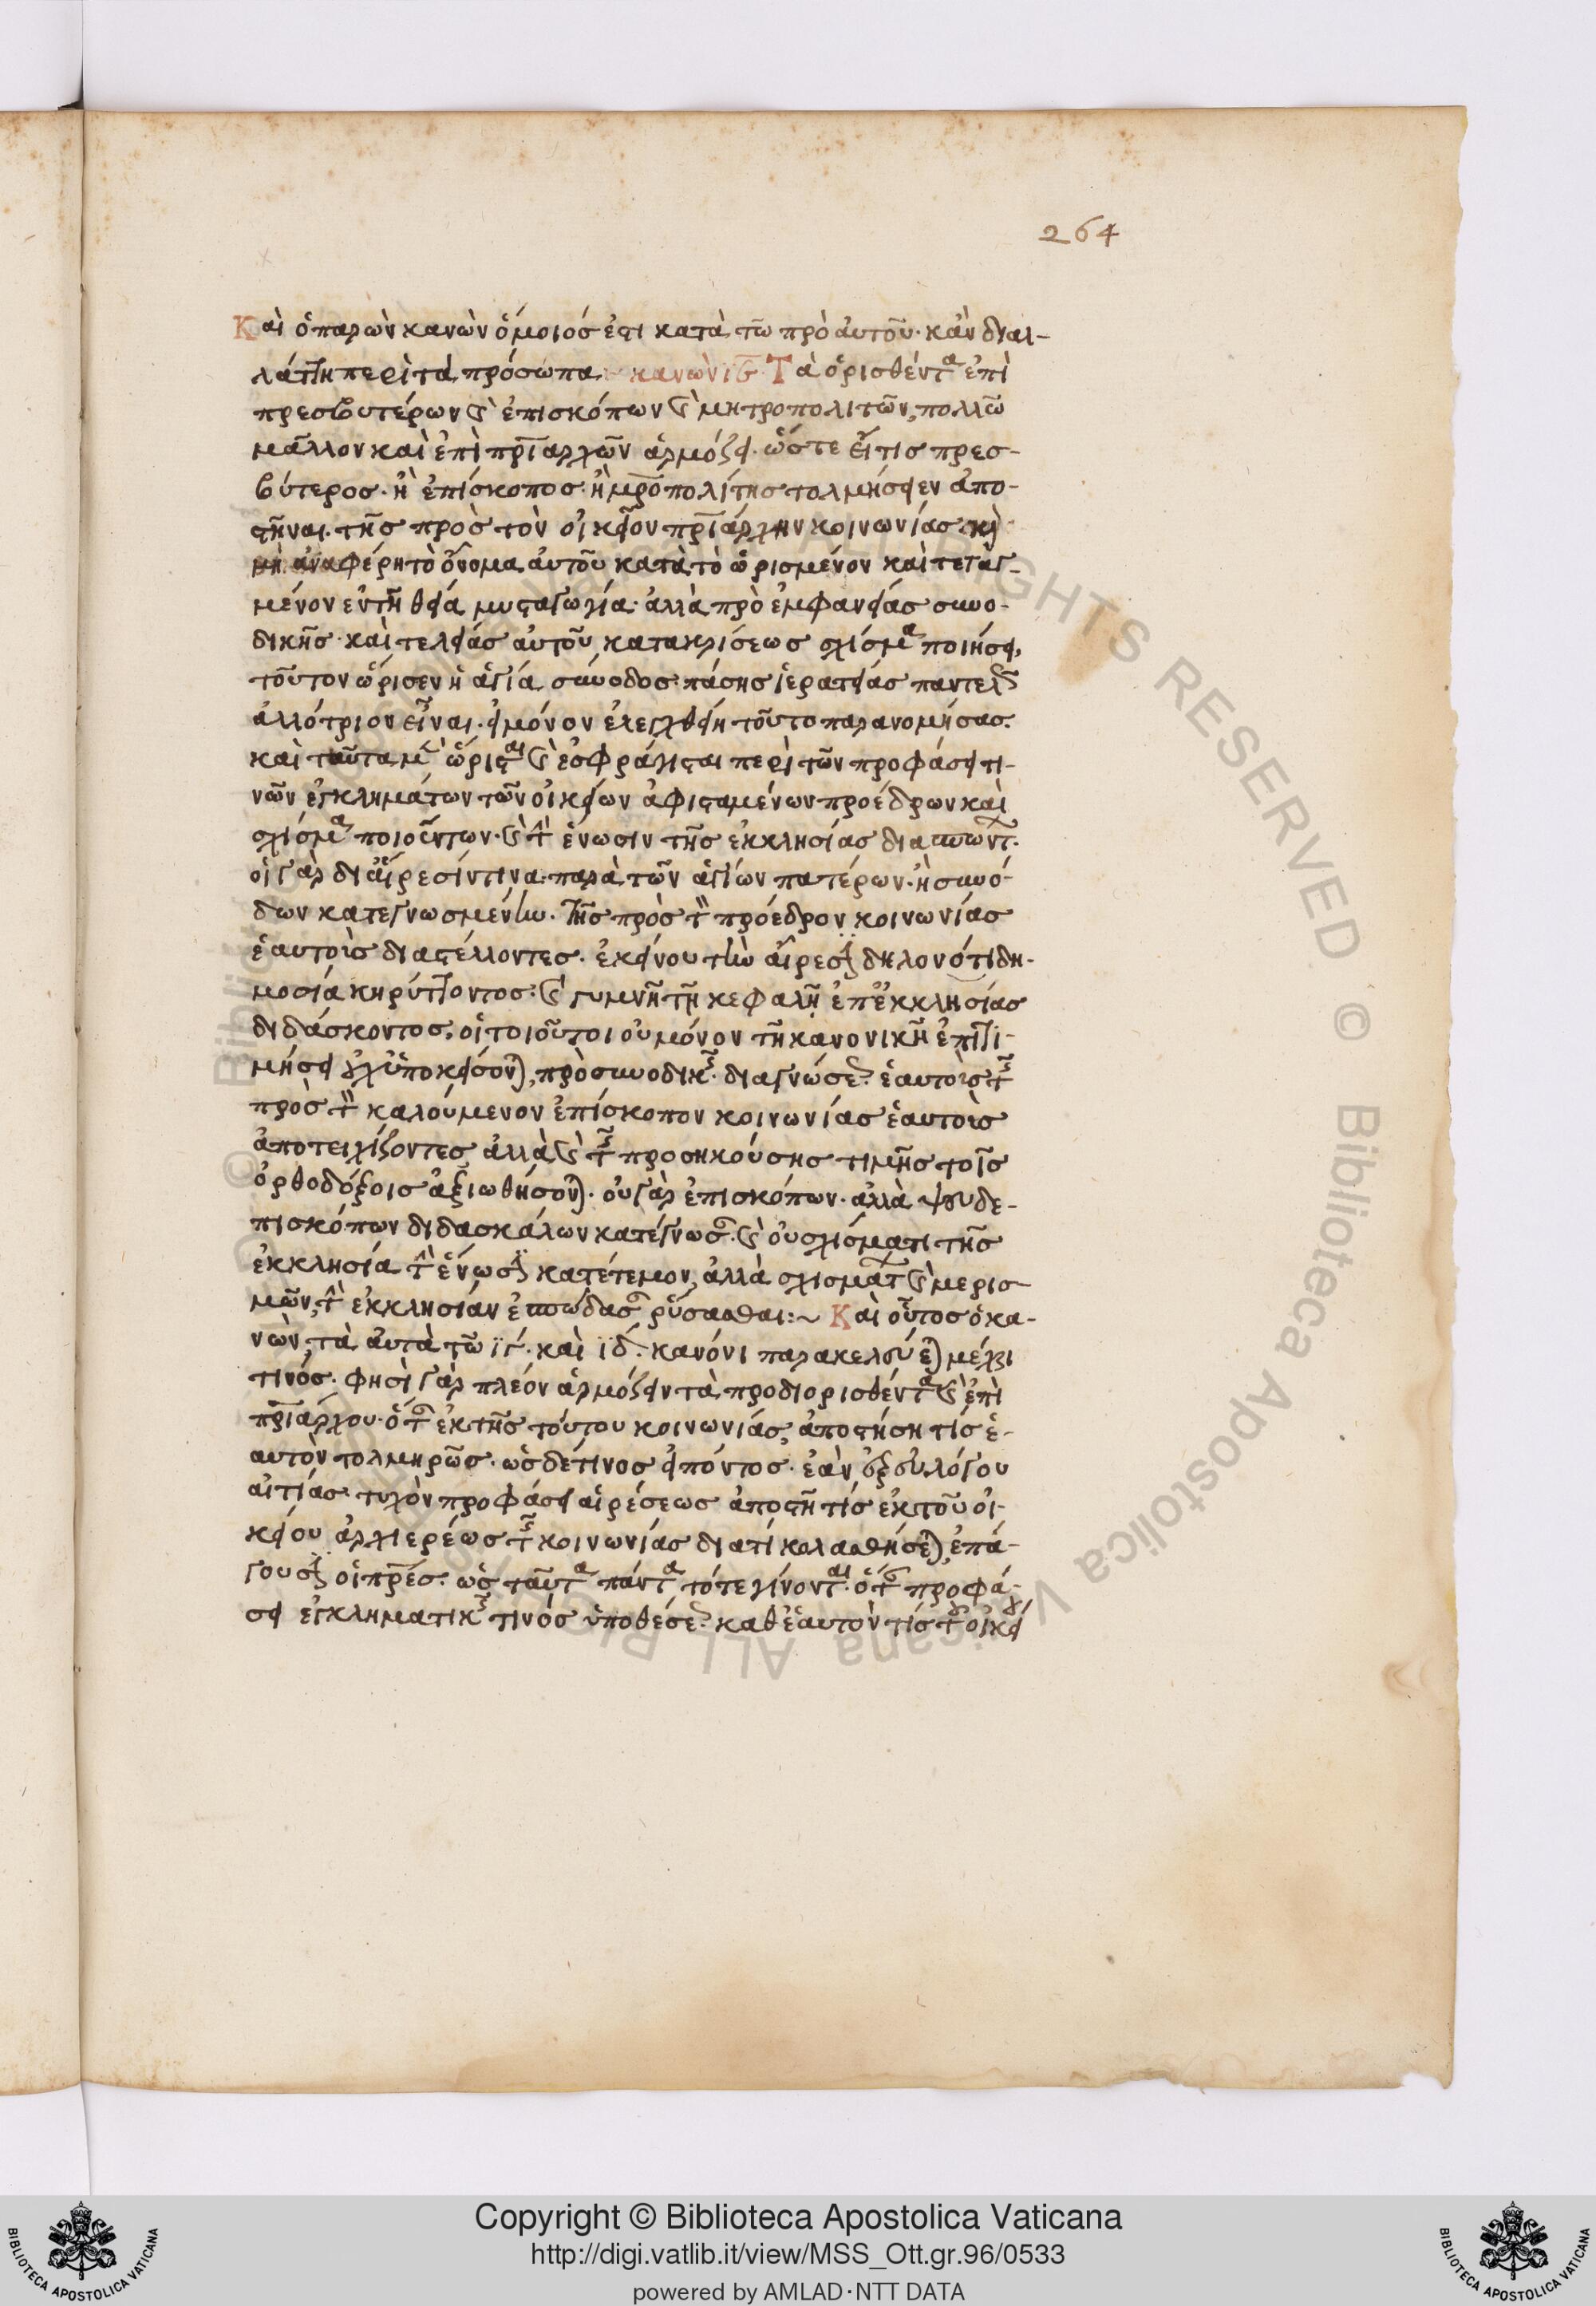 264
Καὶ ὁ παρὼν κανὼν ὅμοιός ἐστι κατὰ τῶ πρὸ αὐτοῦ· κἂν διαλ-
λάττη περὶ τὰ πρόσωπα κανὼν ιε Τὰ ὁρισθέντα ἐπὶ
πρεσβυτέρων καὶ ἐπισκόπων καὶ μητροπολιτῶν, πολλῶ
μᾶλλον καὶ ἐπὶ πριαρχῶν ἁρμόζει· ὥστε εἴ τις πρεσ-
βύτερος· ἢ ἐπίσκοπος· ἢ μροπολίτης τολμήσειεν ἀπο-
στῆναι τῆς πρὸς τὸν οἰκεῖον πριάρχην κοινωνίας· καὶ
μὴ ἀναφέρη τὸ ὄνομα αὐτοῦ κατὰ τὸ ὡρισμένον καὶ τεταγ-
μένον ἐν τῆ θεία μυσταγωγία· ἀλλὰ πρὸ ἐμφανείας συνο-
δικῆς· καὶ τελείας αὐτοῦ κατακρίσεως σχίσμα ποιήσει,
τοῦτον ὥρισεν ἡ ἁγία σύνοδος πάσης ἱερατείας παντελῶς
ἀλλότριον εἶναι· εἰ μόνον ἐλεγχθείη τοῦτο παρανομήσας.
καὶ ταῦτα μὲν ὥρισται καὶ ἐσφράγισται περὶ τῶν προφάσει τι-
νῶν ἐγκλημάτων τῶν οἰκείων ἀφισταμένων προέδρων καὶ
σχίσμα ποιούντων· καὶ τὴν ἕνωσιν τῆς ἐκκλησίας διασπώντων·
οἱ γὰρ δι αἵρεσίν τινα παρὰ τῶν ἁγίων πατέρων· ἢ συνό-
δων κατεγνωσμένην· τῆς πρὸς τὸν πρόεδρον κοινωνίας
ἑαυτοὺς διαστέλλοντες· ἐκείνου τὴν αἵρεσιν δηλονότι δη-
μοσία κηρύττοντος· καὶ γυμνῆ τῆ κεφαλῆ ἐπ ἐκκλησίας
διδάσκοντος, οἱ τοιοῦτοι οὐ μόνον τῆ κανονικῆ ἐπιτι-
μήσει οὐχ ὑποκείσονται, πρὸ συνοδικῆς διαγνώσεως ἑαυτοὺς τῆς
πρὸς τὸν καλούμενον ἐπίσκοπον κοινωνίας ἑαυτοὺς
ἀποτειχίζοντες ἀλλὰ καὶ τῆς προσηκούσης τιμῆς τοῖς
ὀρθοδόξοις ἀξιωθήσονται· οὐ γὰρ ἐπισκόπων· ἀλλὰ ψευδε-
πισκόπων διδασκάλων κατέγνωσαν· καὶ οὐ σχίσματι τῆς
ἐκκλησία τὴν ἕνωσιν κατέτεμον, ἀλλὰ σχισμάτων καὶ μερισ-
μῶν, τὴν ἐκκλησίαν ἐσπούδασαν ῥύσασθαι:~ Καὶ οὗτος ὁ κα-
νὼν, τὰ αὐτὰ τῶ ιγ· καὶ ιδ· κανόνι παρακελεύεται μέχρι
τινός· φησὶ γὰρ πλέον ἁρμόζειν τὰ προδιορισθέντα καὶ ἐπὶ
πριάρχου· ὅταν ἐκ τῆς τούτου κοινωνίας, ἀποστήση τίς ἑ-
αυτὸν τολμηρῶς· ὡς δέ τινος εἰπόντος· ἐὰν ἐξ εὐλόγου
αἰτίας τυχὸν προφάσει αἱρέσεως ἀποστῆ τίς ἐκ τοῦ οἰ-
κείου ἀρχιερέως τῆς κοινωνίας διατί κολασθήσεται, ἐπά-
γουσιν οἱ πρες· ὡς ταῦτα πάντα τότε γίνονται· ὅταν προφά-
σει ἐγκληματικῆς τινὸς ὑποθέσεως καθ ἑαυτὸν τίς τοῦ οἰκεί
Copyright © Biblioteca Apostolica Vaticana
http://digi.vatlib.it/view/MSS_Ott.gr.96/0533
powered by AMLAD·NTT DATA